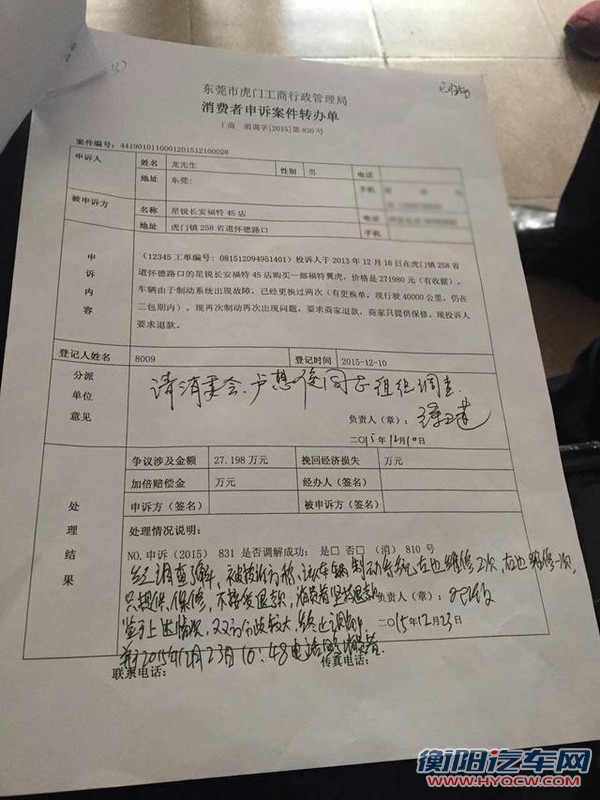 东莞市虎门工商行政管理局
消费者申诉案件转办单
工商 消调字[2015]第 830 号
案件编号: 4419010110001201512100028
申诉人 姓名 龙先生 性别 男 电话
地址 东莞: 手机
被申诉方 名称 星锐长安福特 4S 店 电话
地址 虎门镇 258 省道怀德路口 手机
申诉内容
(12345 工单编号: 081512094951401) 投诉人于 2013 年 12 月 16 日在虎门镇 258 省
道怀德路口的星锐长安福特 4S 店购买一部福特翼虎, 价格是 271980 元 (有收据)。
车辆由于制动系统出现故障, 已经更换过两次 (有更换单, 现行驶 40000 公里, 仍在
三包期内)。现再次制动再次出现问题, 要求商家退款, 商家只提供保修。现投诉人
要求退款。
登记人姓名 8009 登记时间 2015-12-10
分派单位意见
请消委会 卢 同志组织调查
负责人 (章):
二〇15年12月10日
处理结果
争议涉及金额 27.198 万元 挽回经济损失 万元
加倍赔偿金 万元 经办人 (签名)
申诉方 (签名) 被申诉方 (签名)
处理情况说明:
NO.申诉 (2015) 831 是否调解成功: 是□ 否□ (消) 810 号
经调查了解, 被投诉方称, 该车辆制动系统左边维修2次, 右边维修一次,
只提供保修, 不接受退款, 消费者坚持退款 负责人 (章):
鉴于上述情况, 双方分歧较大 终止调解 二〇15年12月23日
并于2015年12月23日10:48电话 消费者.
联系电话: 传真电话:
衡阳汽车网
WWW.HYQCW.COM